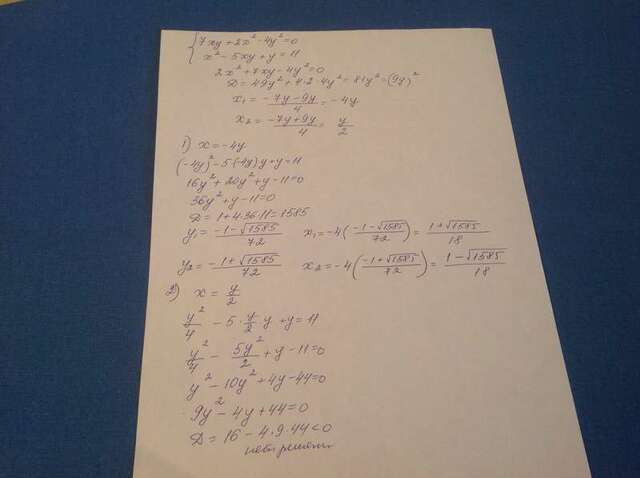 {7xy + 2x² - 4y² = 0
x² - 5xy + y = 11
2x² + 7xy - 4y² = 0
D = 49y² + 4·2·4y² = 81y² = (9y)²
x₁ = (-7y - 9y)/4 = -4y
x₂ = (-7y + 9y)/4 = y/2
1) x = -4y
(-4y)² - 5·(-4y)y + y = 11
16y² + 20y² + y - 11 = 0
36y² + y - 11 = 0
D = 1 + 4·36·11 = 1585
y₁ = (-1 - √1585)/72 x₁ = -4((-1 - √1585)/72) = (1 + √1585)/18
y₂ = (-1 + √1585)/72 x₂ = -4((-1 + √1585)/72) = (1 - √1585)/18
2) x = y/2
y²/4 - 5·y/2 y + y = 11
y²/4 - 5y²/2 + y - 11 = 0
y² - 10y² + 4y - 44 = 0
9y² - 4y + 44 = 0
D = 16 - 4·9·44 < 0